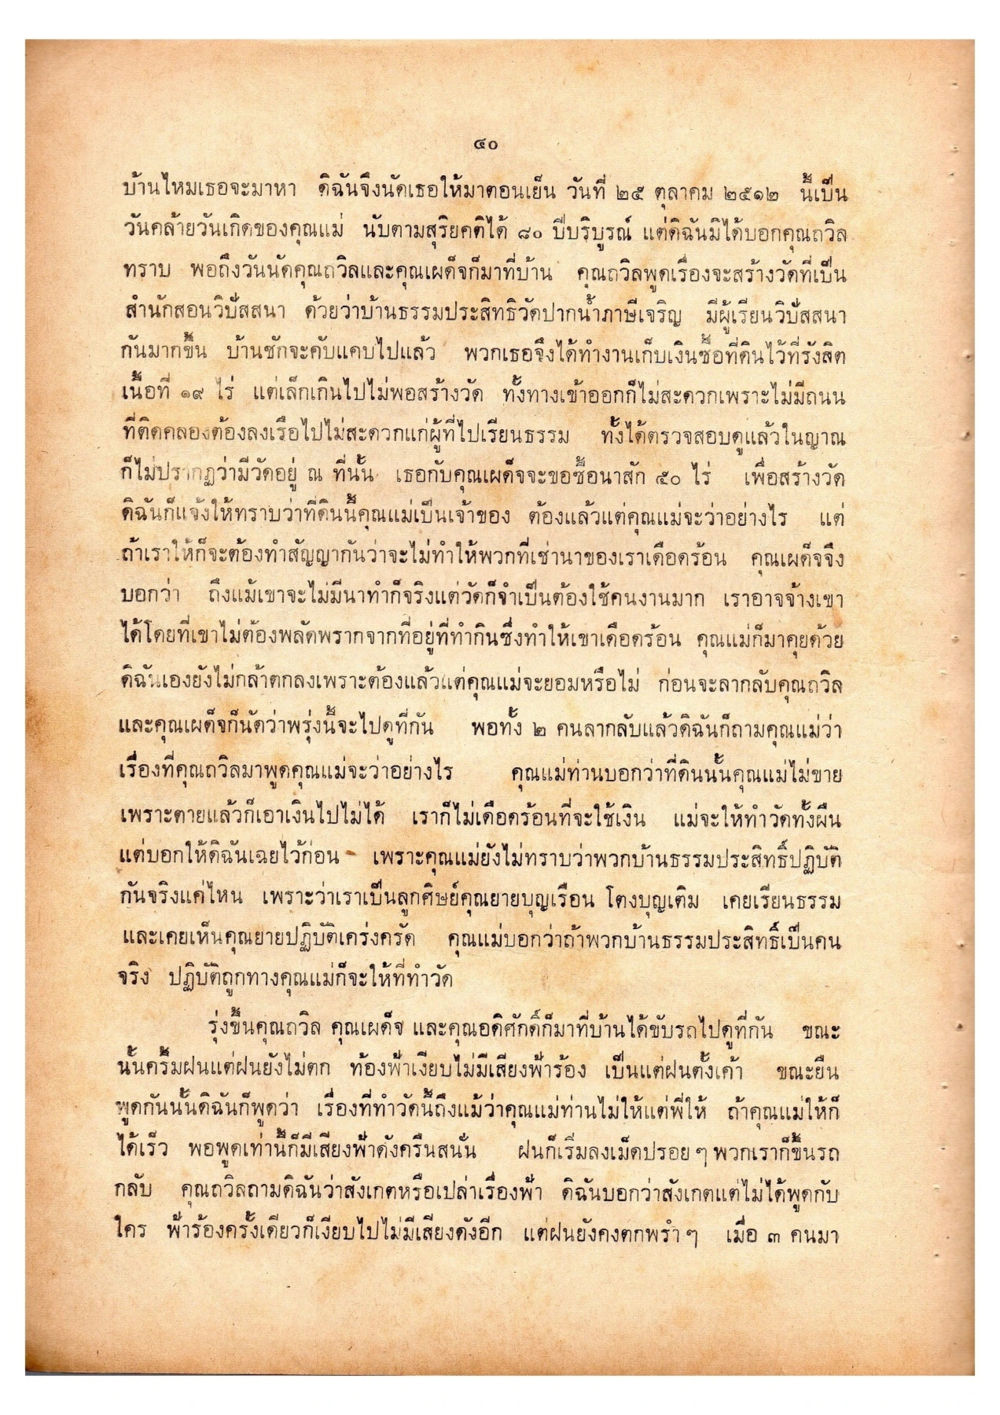 ๔๐
บ้านไหมเธอจะมาหา ดิฉันจึงนัดเธอให้มาตอนเย็น วันที่ ๒๕ ตุลาคม ๒๕๑๒ นี้เป็น
วันคล้ายวันเกิดของคุณแม่ นับตามสุริยคติได้ ๘๐ ปีบริบูรณ์ แต่ดิฉันมิได้บอกคุณถวิล
ทราบ พอถึงวันนัดคุณถวิลและคุณเผด็จก็มาที่บ้าน คุณถวิลพูดเรื่องจะสร้างวัดที่เป็น
สำนักสอนวิปัสสนา ด้วยว่าบ้านธรรมประสิทธิวัดปากน้ำภาษีเจริญ มีผู้เรียนวิปัสสนา
กันมากขึ้น บ้านชักจะคับแคบไปแล้ว พวกเธอจึงได้ทำงานเก็บเงินซื้อที่ดินไว้ที่รังสิต
เนื้อที่ ๑๙ ไร่ แต่เล็กเกินไปไม่พอสร้างวัด ทั้งทางเข้าออกก็ไม่สะดวกเพราะไม่มีถนน
ที่ติดคลองต้องลงเรือไปไม่สะดวกแก่ผู้ที่ไปเรียนธรรม ทั้งได้ตรวจสอบดูแล้วในญาณ
ก็ไม่ปรากฏว่ามีวัดอยู่ ณ ที่นั้น เธอกับคุณเผด็จจะขอซื้อนาสัก ๕๐ ไร่ เพื่อสร้างวัด
ดิฉันก็แจ้งให้ทราบว่าที่ดินนี้คุณแม่เป็นเจ้าของ ต้องแล้วแต่คุณแม่จะว่าอย่างไร แต่
ถ้าเราให้ก็จะต้องทำสัญญากันว่าจะไม่ทำให้พวกที่เช่านาของเราเดือดร้อน คุณเผด็จจึง
บอกว่า ถึงแม้เขาจะไม่มีนาทำก็จริงแต่วัดก็จำเป็นต้องใช้คนงานมาก เราอาจจ้างเขา
ได้โดยที่เขาไม่ต้องพลัดพรากจากที่อยู่ที่ทำกินซึ่งทำให้เขาเดือดร้อน คุณแม่ก็มาคุยด้วย
ดิฉันเองยังไม่กล้าตกลงเพราะต้องแล้วแต่คุณแม่จะยอมหรือไม่ ก่อนจะลากลับคุณถวิล
และคุณเผด็จก็นัดว่าพรุ่งนี้จะไปดูที่กัน พอทั้ง ๒ คนลากลับแล้วดิฉันก็ถามคุณแม่ว่า
เรื่องที่คุณถวิลมาพูดคุณแม่จะว่าอย่างไร คุณแม่ท่านบอกว่าที่ดินนั้นคุณแม่ไม่ขาย
เพราะตายแล้วก็เอาเงินไปไม่ได้ เราก็ไม่เดือดร้อนที่จะใช้เงิน แม่จะให้ทำวัดทั้งผืน
แต่บอกให้ดิฉันเฉยไว้ก่อน เพราะคุณแม่ยังไม่ทราบว่าพวกบ้านธรรมประสิทธิ์ปฏิบัติ
กันจริงแค่ไหน เพราะว่าเราเป็นลูกศิษย์คุณยายบุญเรือน โตงบุญเติม เคยเรียนธรรม
และเคยเห็นคุณยายปฏิบัติเคร่งครัด คุณแม่บอกว่าถ้าพวกบ้านธรรมประสิทธิ์เป็นคน
จริง ปฏิบัติถูกทางคุณแม่ก็จะให้ที่ทำวัด
รุ่งขึ้นคุณถวิล คุณเผด็จ และคุณอดิศักดิ์ก็มาที่บ้านได้ขับรถไปดูที่กัน ขณะ
นั้นครึ้มฝนแต่ฝนยังไม่ตก ท้องฟ้าเงียบไม่มีเสียงฟ้าร้อง เป็นแต่ฝนตั้งเค้า ขณะยืน
พูดกันนั้นดิฉันก็พูดว่า เรื่องที่ทำวัดนี้ถึงแม้ว่าคุณแม่ท่านไม่ให้แต่พี่ให้ ถ้าคุณแม่ให้ก็
ได้เร็ว พอพูดเท่านี้ก็มีเสียงฟ้าดังครืนสนั่น ฝนก็เริ่มลงเม็ดปรอย ๆ พวกเราก็ขึ้นรถ
กลับ คุณถวิลถามดิฉันว่าสังเกตหรือเปล่าเรื่องฟ้า ดิฉันบอกว่าสังเกตแต่ไม่ได้พูดกับ
ใคร ฟ้าร้องครั้งเดียวก็เงียบไปไม่มีเสียงดังอีก แต่ฝนยังคงตกพรำ ๆ เมื่อ ๓ คนมา